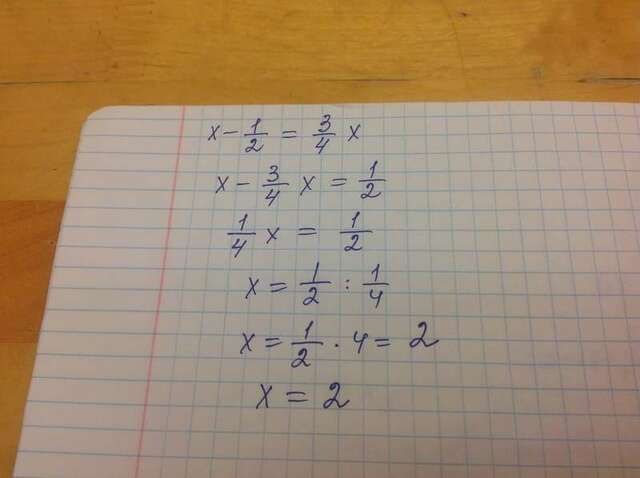 x - 1/2 = 3/4 x
x - 3/4 x = 1/2
1/4 x = 1/2
x = 1/2 : 1/4
x = 1/2 · 4 = 2
x = 2